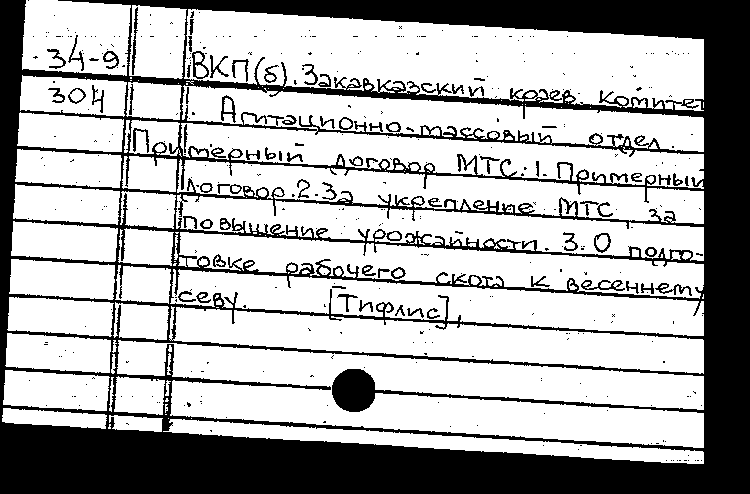 34-9. ВКП(б). Закавказский краев. Комитет
304 Агитационно-массовый отдел.
Примерный договор МТС: 1. Примерный
договор. 2. За укрепление МТС, за
повышение урожайности. 3. О подго-
товке рабочего скота к весеннему
севу. [Тифлис],